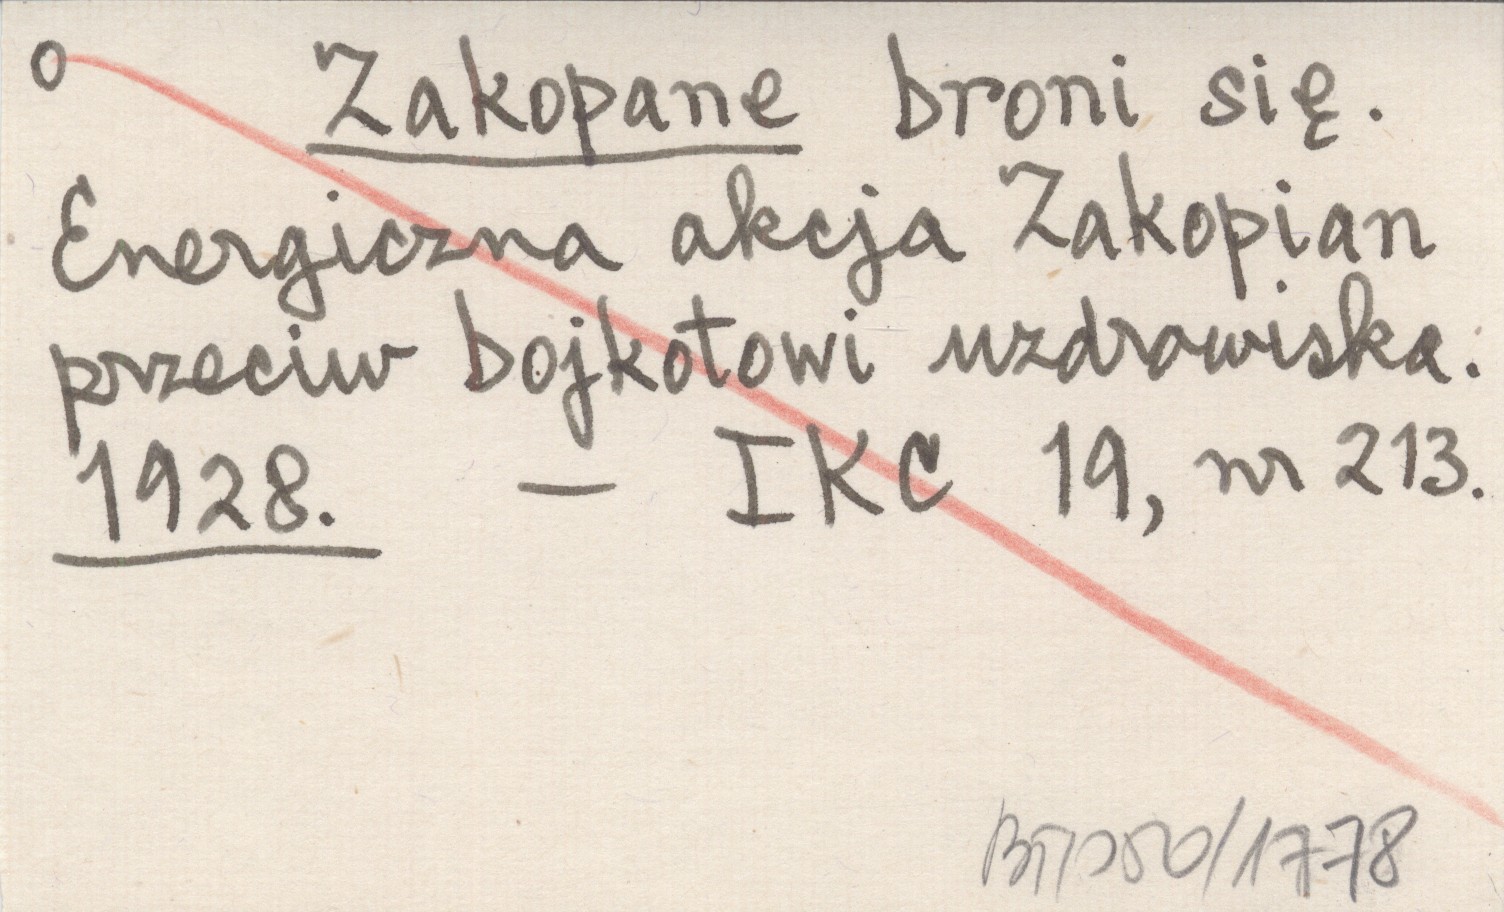 o Zakopane broni się.
Energiczna akcja Zakopian
przeciw bojkotowi uzdrowiska.
1928. — IKC 19, nr 213.
/1778